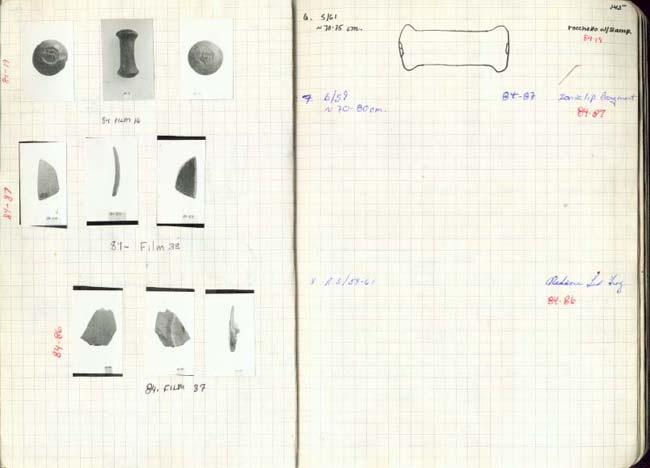 84-19
84 FILM 16
84-87
84- Film 38
84-86
84. FILM 37
145
6. S/61
~70-75 cm.
rocchetto w/stamp.
84-19
7 6/59
~70-80cm.
84-87
Ionic lip fragment
84-87
8 R S/59-61
84-86